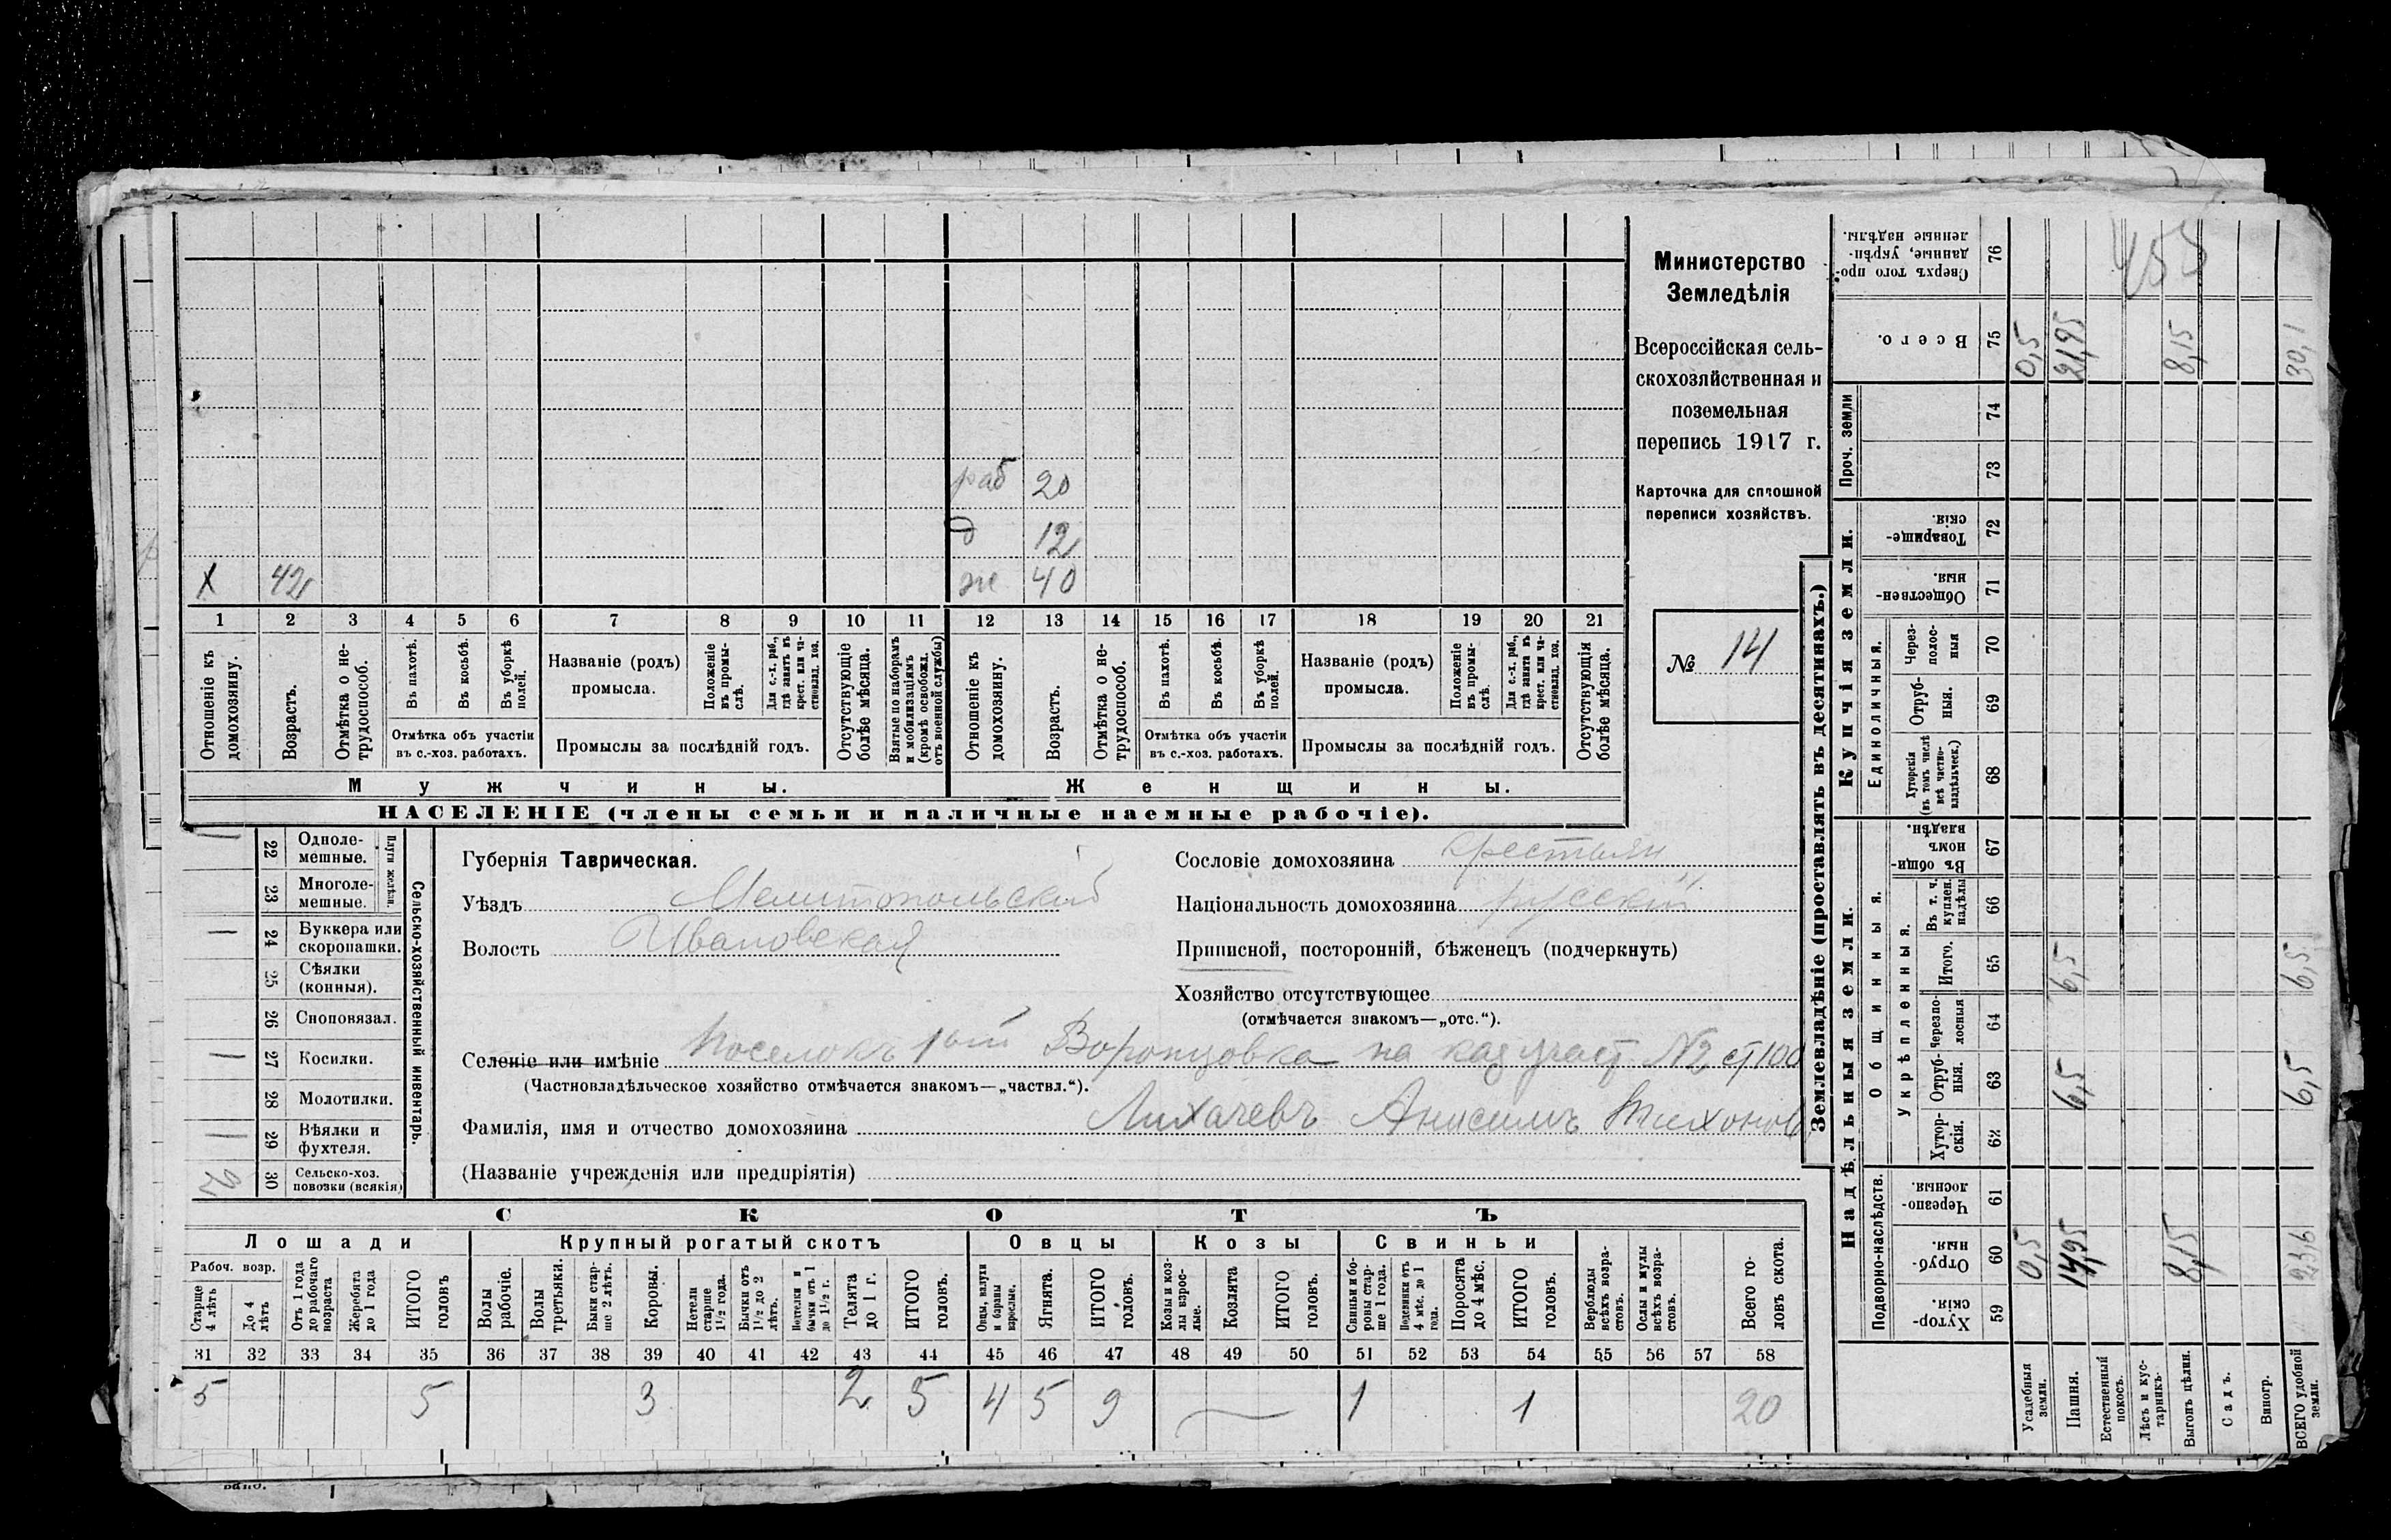 Министерство
Земледѣлія
Всероссійская сель-
скохозяйственная и
поземельная
перепись 1917 г.
Карточка для сплошной
переписи хозяйствъ.
№ 14
раб 20
д 12
х 42 ж 40
1 2 3 4 5 6 7 8 9 10 11 12 13 14 15 16 17 18 19 20 21
Отношеніе къ домохозяину.
Возрастъ.
Отмѣтка о не-трудоспособ.
Въ пахотѣ.
Въ косьбѣ.
Въ уборкѣ полей.
Отмѣтка объ участіи
въ с.-хоз. работахъ.
Названіе (родъ)
промысла.
Положеніе въ промы-слѣ.
Для с.-х. раб., гдѣ занятъ въ крест. или ча-стновлад. хоз.
Промыслы за послѣдній годъ.
Отсутствующіе болѣе мѣсяца.
Взятые по наборамъ и мобилизаціямъ (кромѣ освобожд. отъ военной службы)
Отношеніе къ домохозяину.
Возрастъ.
Отмѣтка о не-трудоспособ.
Въ пахотѣ.
Въ косьбѣ.
Въ уборкѣ полей.
Отмѣтка объ участіи
въ с.-хоз. работахъ.
Названіе (родъ)
промысла.
Положеніе въ промы-слѣ.
Для с.-х. раб., гдѣ занята въ крест. или ча-стновлад. хоз.
Промыслы за послѣдній годъ.
Отсутствующія болѣе мѣсяца.
Мужчины. Женщины.
НАСЕЛЕНІЕ (члены семьи и наличные наемные рабочіе).
Сельско-хозяйственный инвентарь.
Плуги желѣзн.
1 22 Одноле-мешные.
23 Многоле-мешные.
1 24 Буккера или скоропашки.
25 Сѣялки (конныя).
26 Сноповязал.
1 27 Косилки.
28 Молотилки.
1 29 Вѣялки и фухтеля.
30 Сельско-хоз. повозки (всякія)
Губернія Таврическая.
Уѣздъ Мелитопольскій
Волость Ивановская
Сословіе домохозяина крестьян
Національность домохозяина русскій
Приписной, посторонній, бѣженецъ (подчеркнуть)
Хозяйство отсутствующее
(отмѣчается знакомъ—„отс.“).
Селеніе или имѣніе Поселокъ 1ый Воронцовка на каз участ. №2 ст 100
(Частновладѣльческое хозяйство отмѣчается знакомъ—„частвл.“).
Фамилія, имя и отчество домохозяина Лихачевъ Анисимъ Тихонов
(Названіе учрежденія или предпріятія)
СКОТЪ
Лошади Крупный рогатый скотъ Овцы Козы Свиньи
Рабоч. возр.
Старше 4 лѣтъ
До 4 лѣтъ
Отъ 1 года до рабочаго возраста
Жеребята до 1 года
ИТОГО головъ
Волы рабочіе.
Волы третьяки.
Быки стар-ше 2 лѣтъ.
Коровы.
Нетели старше 1½ года.
Бычки отъ 1½ до 2 лѣтъ.
Подтелки и бычки отъ 1 до 1½ г.
Телята до 1 г.
ИТОГО головъ.
Овцы, валухи и бараны взрослые.
Ягнята.
ИТОГО головъ.
Козы и коз-лы взрос-лые.
Козлята
ИТОГО головъ.
Свиньи и бо-ровы стар-ше 1 года.
Подсвинки отъ 4 мѣс. до 1 года.
Поросята до 4 мѣс.
ИТОГО головъ.
Верблюды всѣхъ возра-стовъ.
Ослы и мулы всѣхъ возра-стовъ.
Всего го-ловъ скота.
31 32 33 34 35 36 37 38 39 40 41 42 43 44 45 46 47 48 49 50 51 52 53 54 55 56 57 58
5 5 3 2 5 4 5 9 — 1 1 20
Землевладѣніе (проставлять въ десятинахъ.)
Надѣльныя земли. Купчія земли. Проч. земли
Подворно-наслѣдств. Общинныя. Единоличныя.
Укрѣпленныя.
Хутор-скія. 59
Отруб-ныя. 60
Черезпо-лосныя. 61
Хутор-скія. 62
Отруб-ныя. 63
Черезпо-лосныя 64
Итого. 65
Въ т. ч. куплен. надѣлы 66
Въ общи-номъ владѣн. 67
Хуторскія (въ томъ числѣ всѣ частно-владѣльческ.) 68
Отруб-ныя. 69
Через-полос-ныя 70
Обществен-ныя. 71
Товарище-скія. 72
73
74
Всего. 75
Сверхъ того про-данные, укрѣп-ленные надѣлы. 76
Усадебныя земли. 0,5 0,5
Пашня. 14,95 6,5 6,5 21,95
Естественный покосъ.
Лѣсъ и кус-тарникъ.
Выгонъ цѣлин. 8,15 8,15
Садъ.
Виногр.
ВСЕГО удобной земли. 23,6 6,5 6,5 30,1